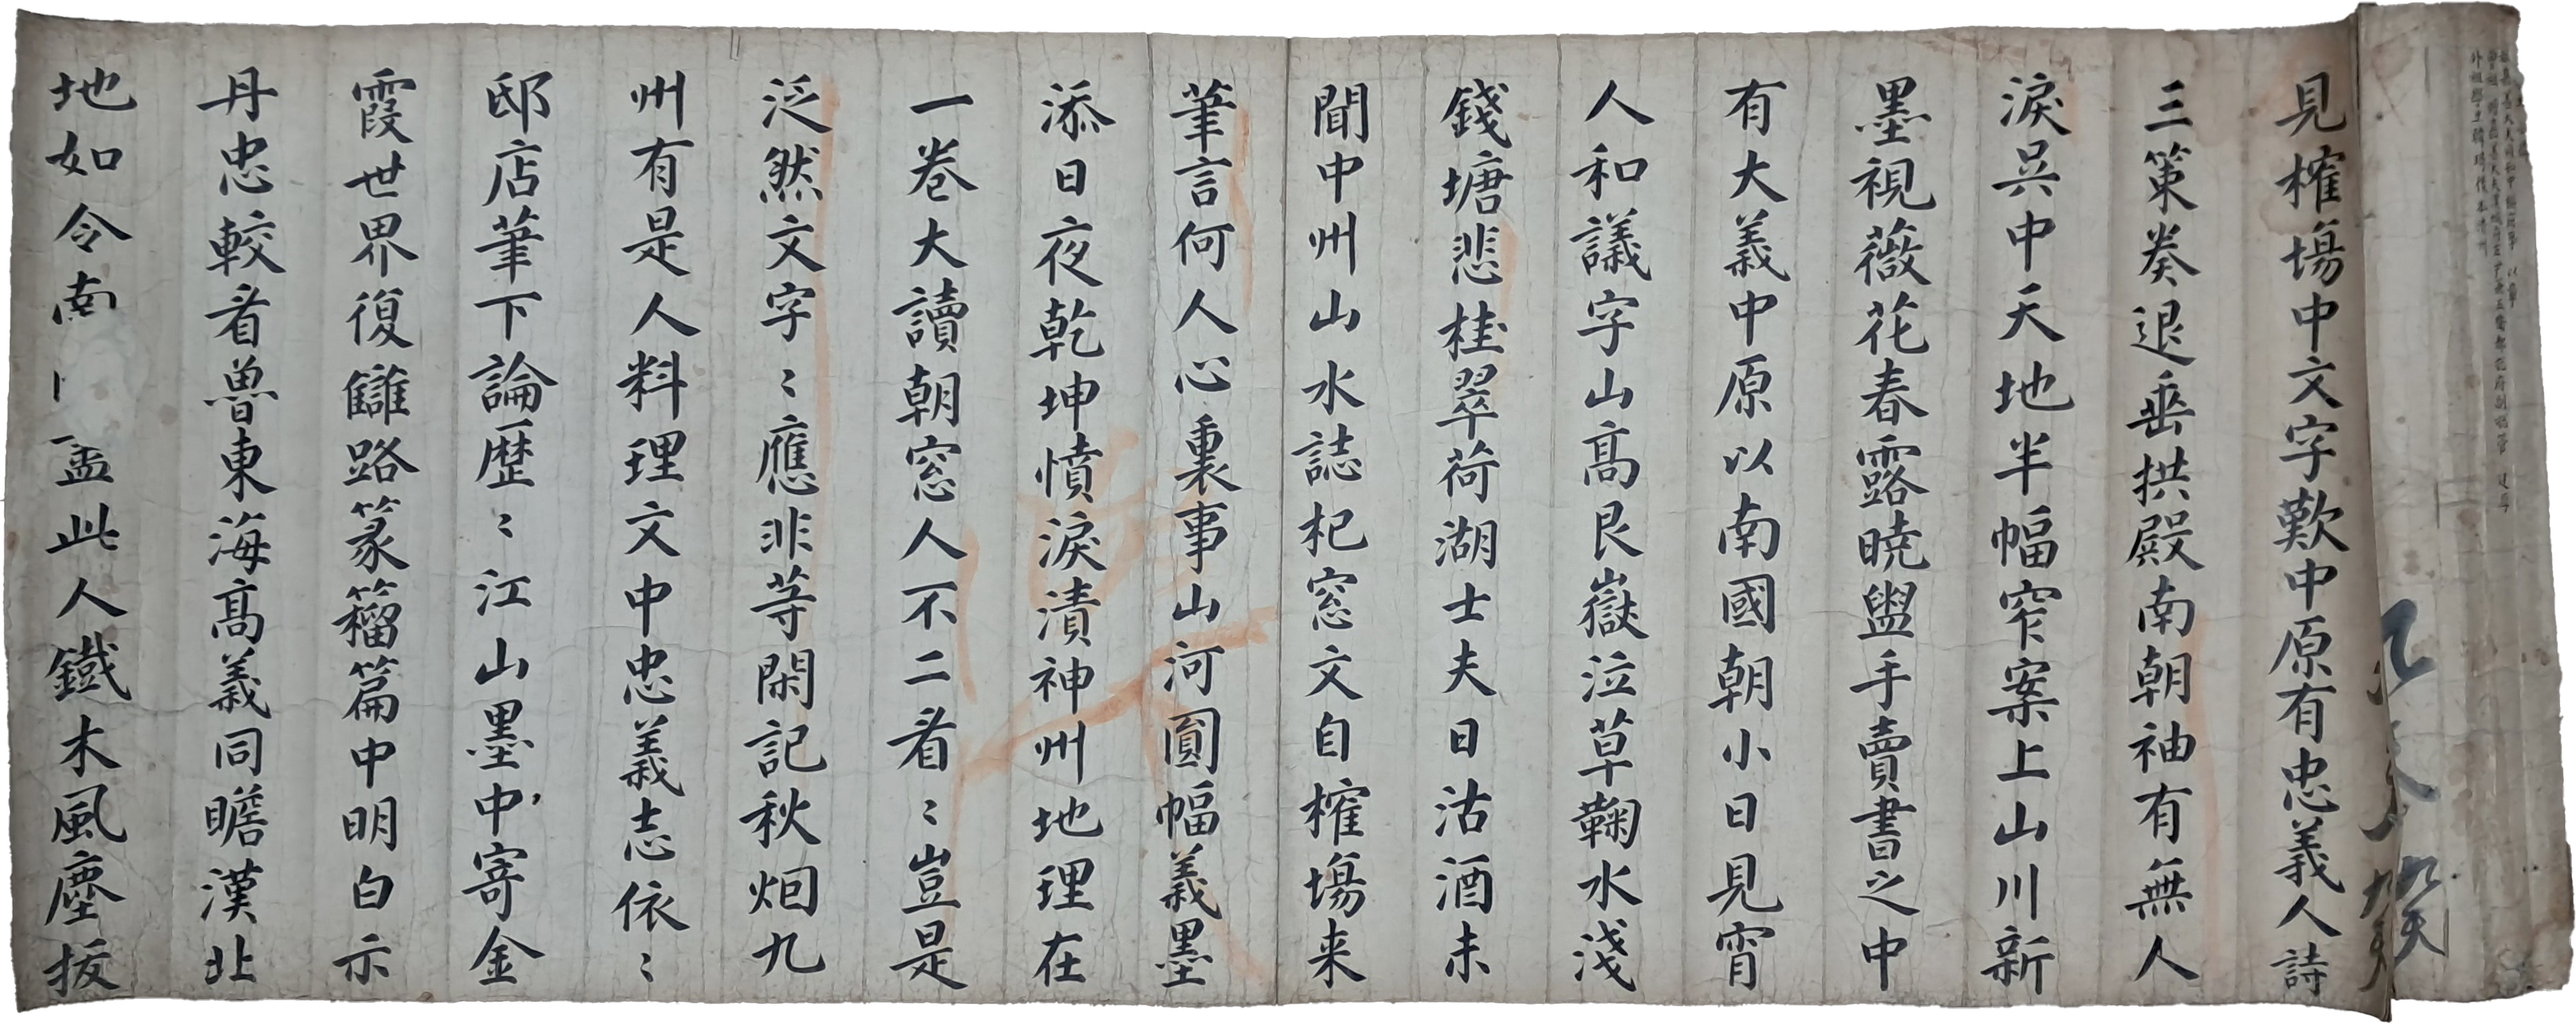 見榷場中文字歎中原有忠義人詩
三策奏退垂拱殿南朝袖有無人
淚吳中天地半幅窄案上山川新
墨視薇花春露曉盥手賣書之中
有大義中原以南國朝小日見宵
人和議字山高艮嶽泣草鞠水淺
錢塘悲桂翠荷湖士夫日沽酒未
聞中州山水誌杞窓文自榷場来
筆言何人心裏事山河圓幅義墨
添日夜乾坤憤淚漬神州地理在
一巻大讀朝窓人不二看〻豈是
泛然文字〻應非等閑記秋烟九
州有是人料理文中忠義志依〻
邸店筆下論歷〻江山墨中寄金
霞世界復讎路篆籀篇中明白示
丹忠較看魯東海高義同瞻漢北
地如令南盂此人鐵木風塵拔